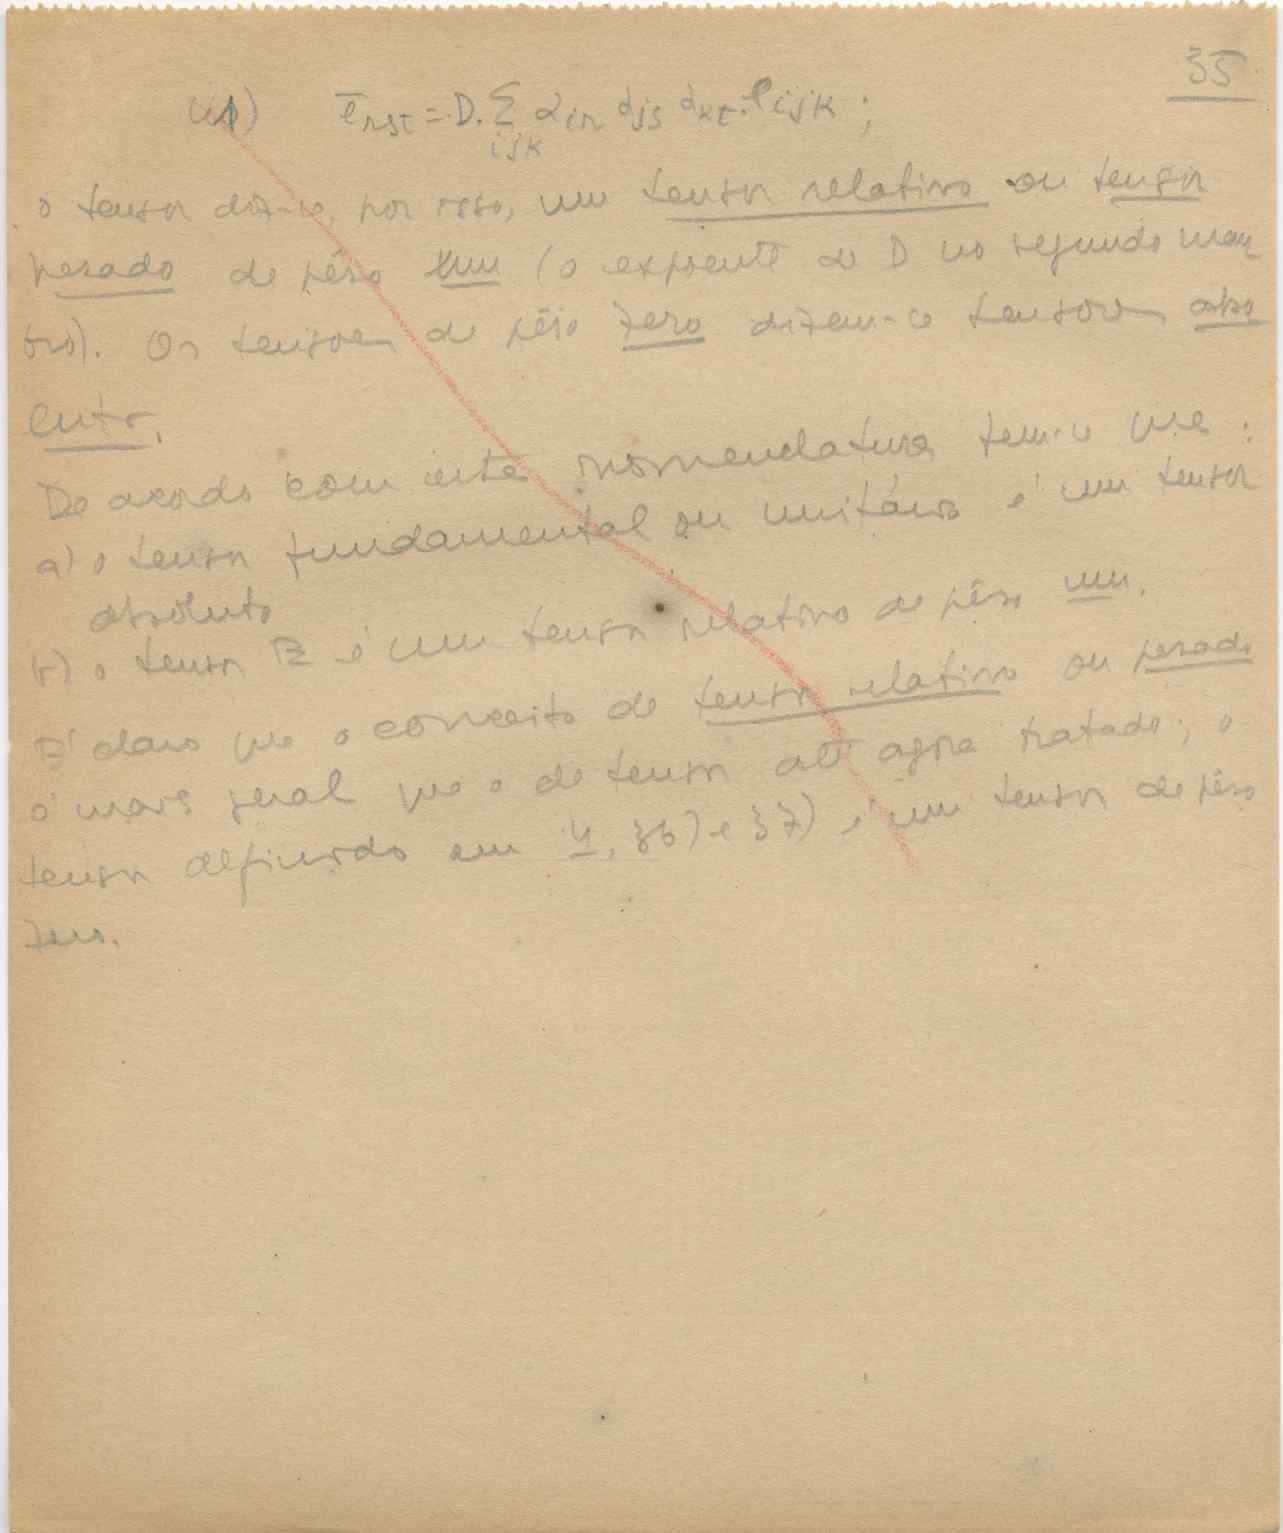 35
ē_rst = D. Σ_ijk α_ir α_js α_kt . e_ijk ;
o tensor diz-se, por isso, um tensor relativo ou tensor
pesado de pêso um (o expoente de D no segundo mem
bro). Os tensores de pêso zero dizem-se tensores abso
lutos.
De acordo com esta nomenclatura, tem-se que :
a) o tensor fundamental ou unitário é um tensor
absoluto
b) o tensor E é um tensor relativo de pêso um.
É claro que o conceito de tensor relativo ou pesado
é mais geral que o de tensor até agora tratado; o
tensor definido em 4, 36) e 37) é um tensor de pêso
zero.